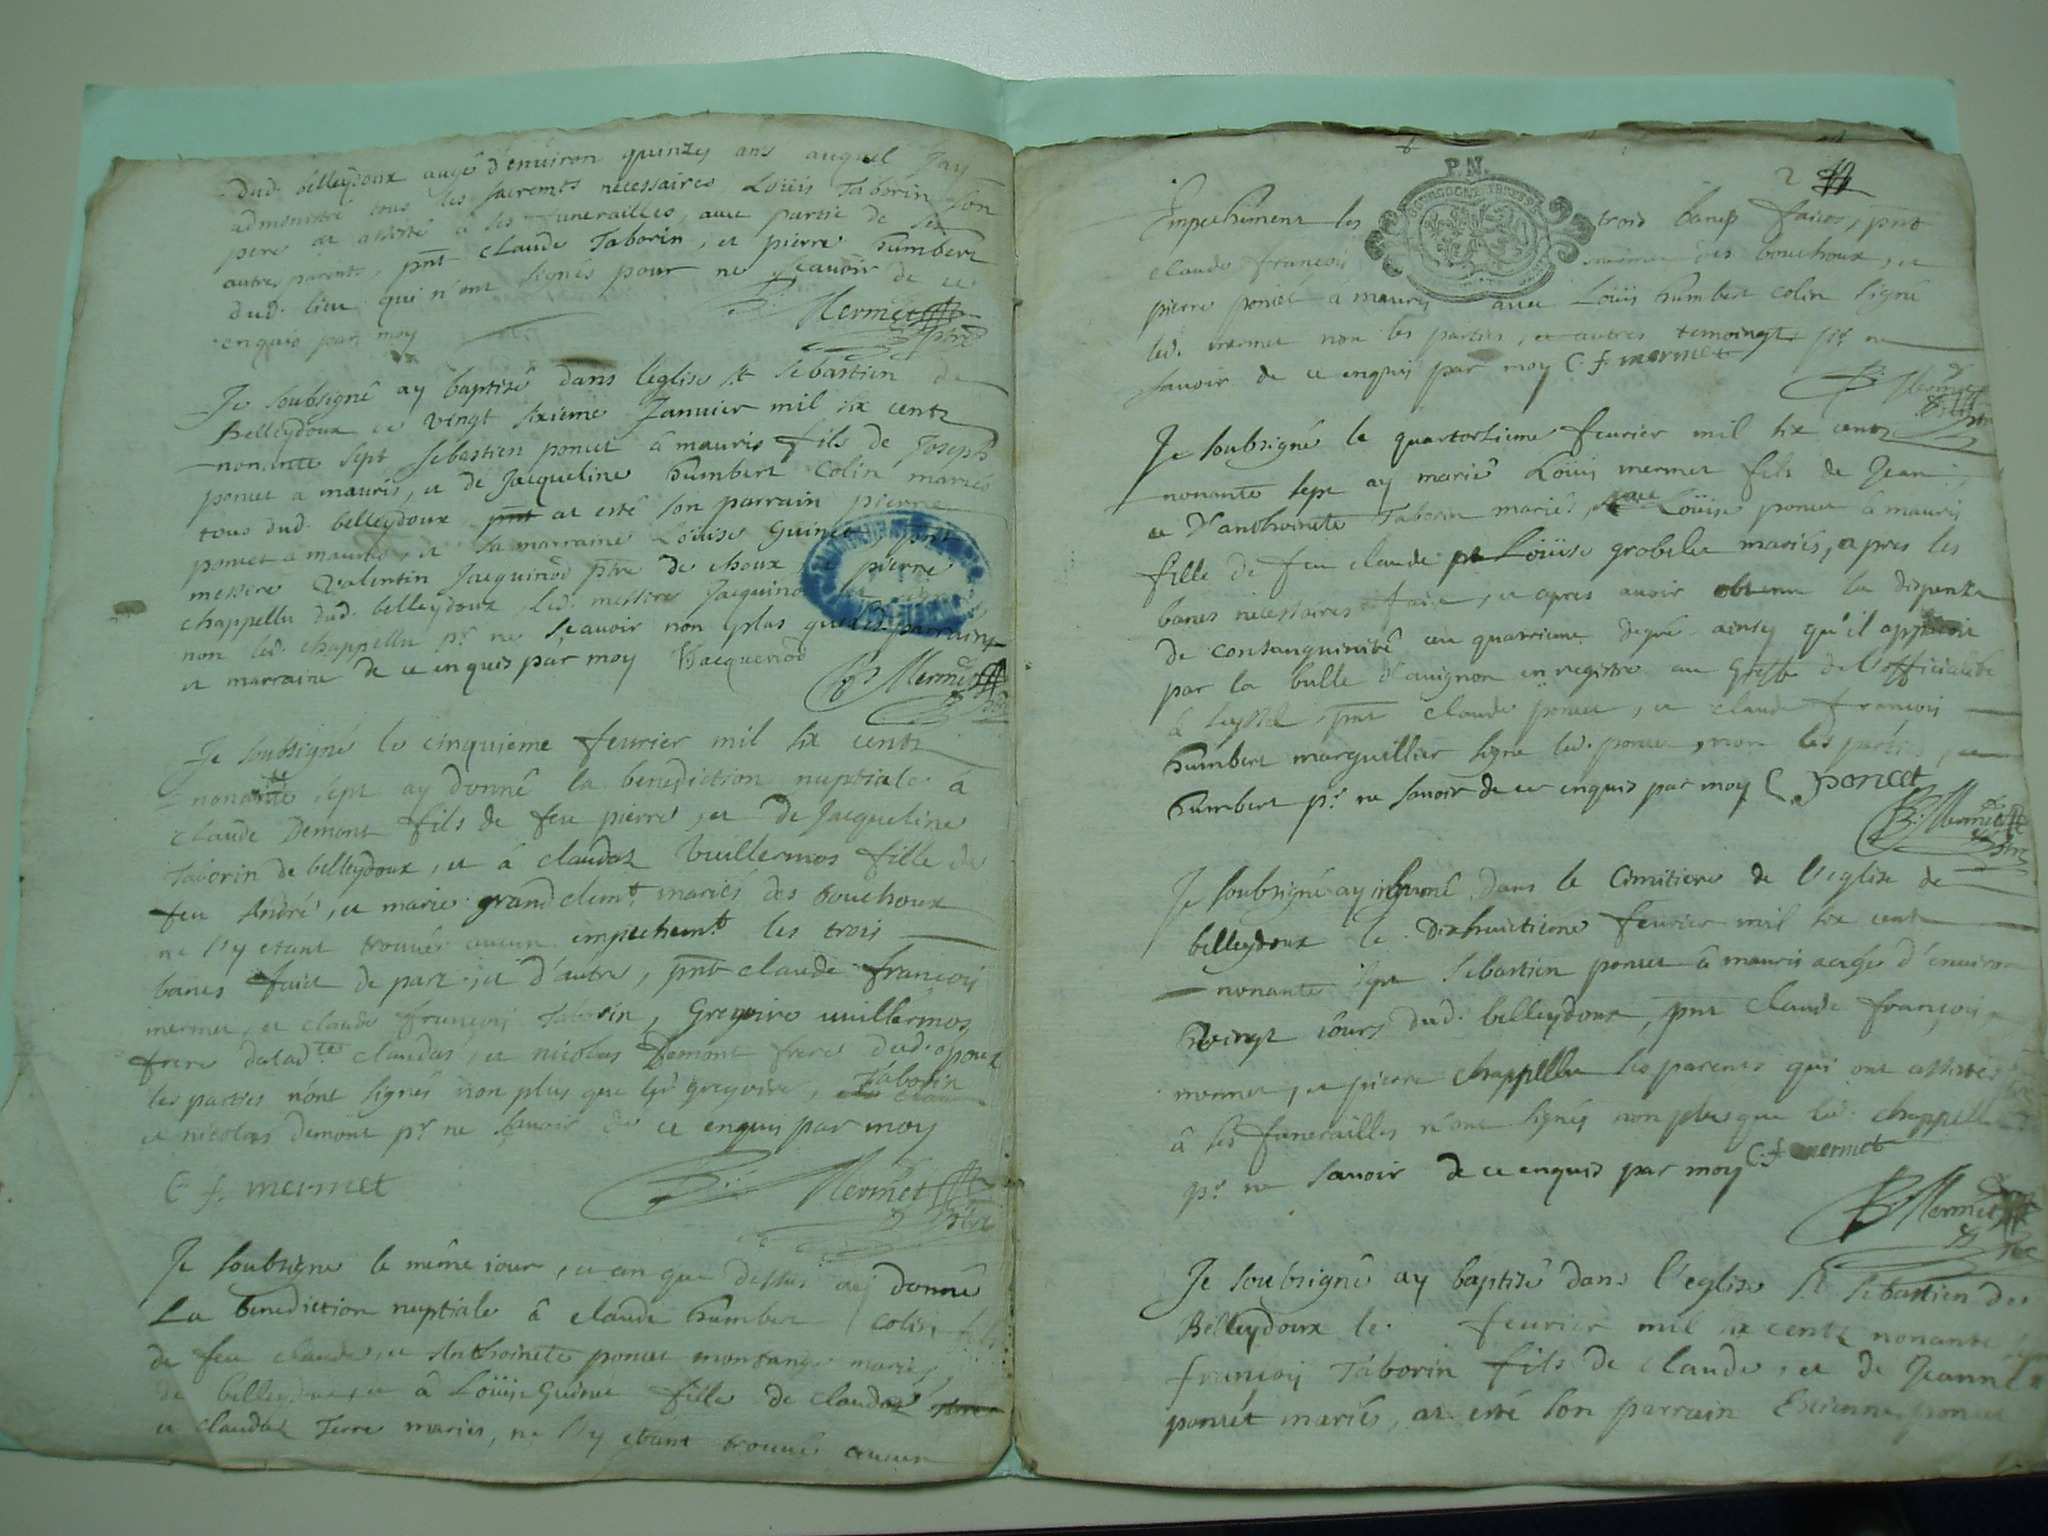 dud. belleydoux augé d'environ quinzes ans auquel Jay
admonistré tous les sacremts necessaires Loüis Taborin son
pere at assisté à ses funerailles, avec partie de ses
autres parents, pnt Claude Taborin, et pierre humbert
dud. lieu qui n'ont signés pour ne scavoir de ce
enquis par moy
B. Mermet
ptre
Je soubsigné ay baptisé dans l'eglise St Sebastien de
Belleydoux ce vingt sixieme Janvier mil six centz
nonante sept Sebastien poncet à mauris fils de Joseph
poncet a mauris, et de Jacqueline humbert Colin mariés
tous dud. belleydoux at esté son parrain pierre
poncet a mauris, et sa marraine Loüise Guinet, pnt
messire Valentin Jacquinod ptre de choux, et pierre
chappellu dud. belleydoux led. messire Jacquinod
non led. chappellu pr ne scavoir non plus que parrain
et marraine de ce enquis par moy VJacquenod
B. Mermet
ptre
Je soubsigné le cinquieme fevrier mil six centz
nonante sept ay donné la benediction nuptiale à
Claude Demont fils de feu pierre, et de Jacqueline
Taborin de belleydoux, et à claudaz Vuillermos fille de
feu André, et marie grandclemt mariés des bouchoux
ne s'y etant trouvés aucun empechemt les trois
bancs faict de part, et d'autre, pnt claude françois
mermet, et claude françois Taborin, Gregoire vuillermos
frere delad.te claudaz, et nicolas Demont frere dud. epoux
les parties n'ont signés non plus que led gregoire, Taborin
et nicolas demont pr ne scavoir de ce enquis par moy
C. f. mermet
B. Mermet
ptre
Je soubsigné le même iour, et an que dessus ay donné
La benediction nuptiale à claude humbert Colin fils
de feu claude, et Anthoinete poncet montange mariés
de belleydoux, et à Loüise Guinet fille de claudaz
et claudaz Terre mariés, ne s'y etant trouvé aucun
P.N.
2
BOURGOGNE BRESSE
Impechement les trois bancs faicts, pnt
claude françois mermet des bouchoux, et
pierre poncet à mauris avec Loüis humbert Colin signé
led. mermet non les parties, et autres temoingts pr ne
savoir de ce enquis par moy C. f. mermet
B. Mermet
ptre
Je soubsigné le quatorsieme fevrier mil six centz
nonante sept ay marié Loüis mermet fils de Jean
et D'anthoinete Taborin mariés, avec Loüise poncet à mauris
fille de feu claude et Loüise grobelu mariés, apres les
bancs necessaires faict, et apres avoir obtenu la dispenze
de consanguinité au quatrieme degré ainsy qu'il appert
par la bulle d'avignon enregistré au Greffe de l'officialité
à Seyssel pnt claude poncet, et claude françois
humbert marguillier signé led. poncet, non les parties, et
humbert pr ne savoir de ce enquis par moy C. poncet
B. Mermet
ptre
Je soubsigné ay inhumé dans le Cimitiere de l'eglise de
belleydoux le dixhuictieme fevrier mil six cent
nonante sept Sebastien poncet à mauris aagé d'environ
vingt iours dud. belleydoux, pnt claude françois
mermet, et pierre chappellu les parents qui ont assisté
à ses funerailles n'ont signés non plus que led. chappellu
pr ne savoir de ce enquis par moy C. f. mermet
B. Mermet
ptre
Je soubsigné ay baptisé dans l'eglise St Sebastien de
Belleydoux le fevrier mil six centz nonante
françois Taborin fils de claude, et de Jeanne
poncet mariés, at esté son parrain Estienne poncet